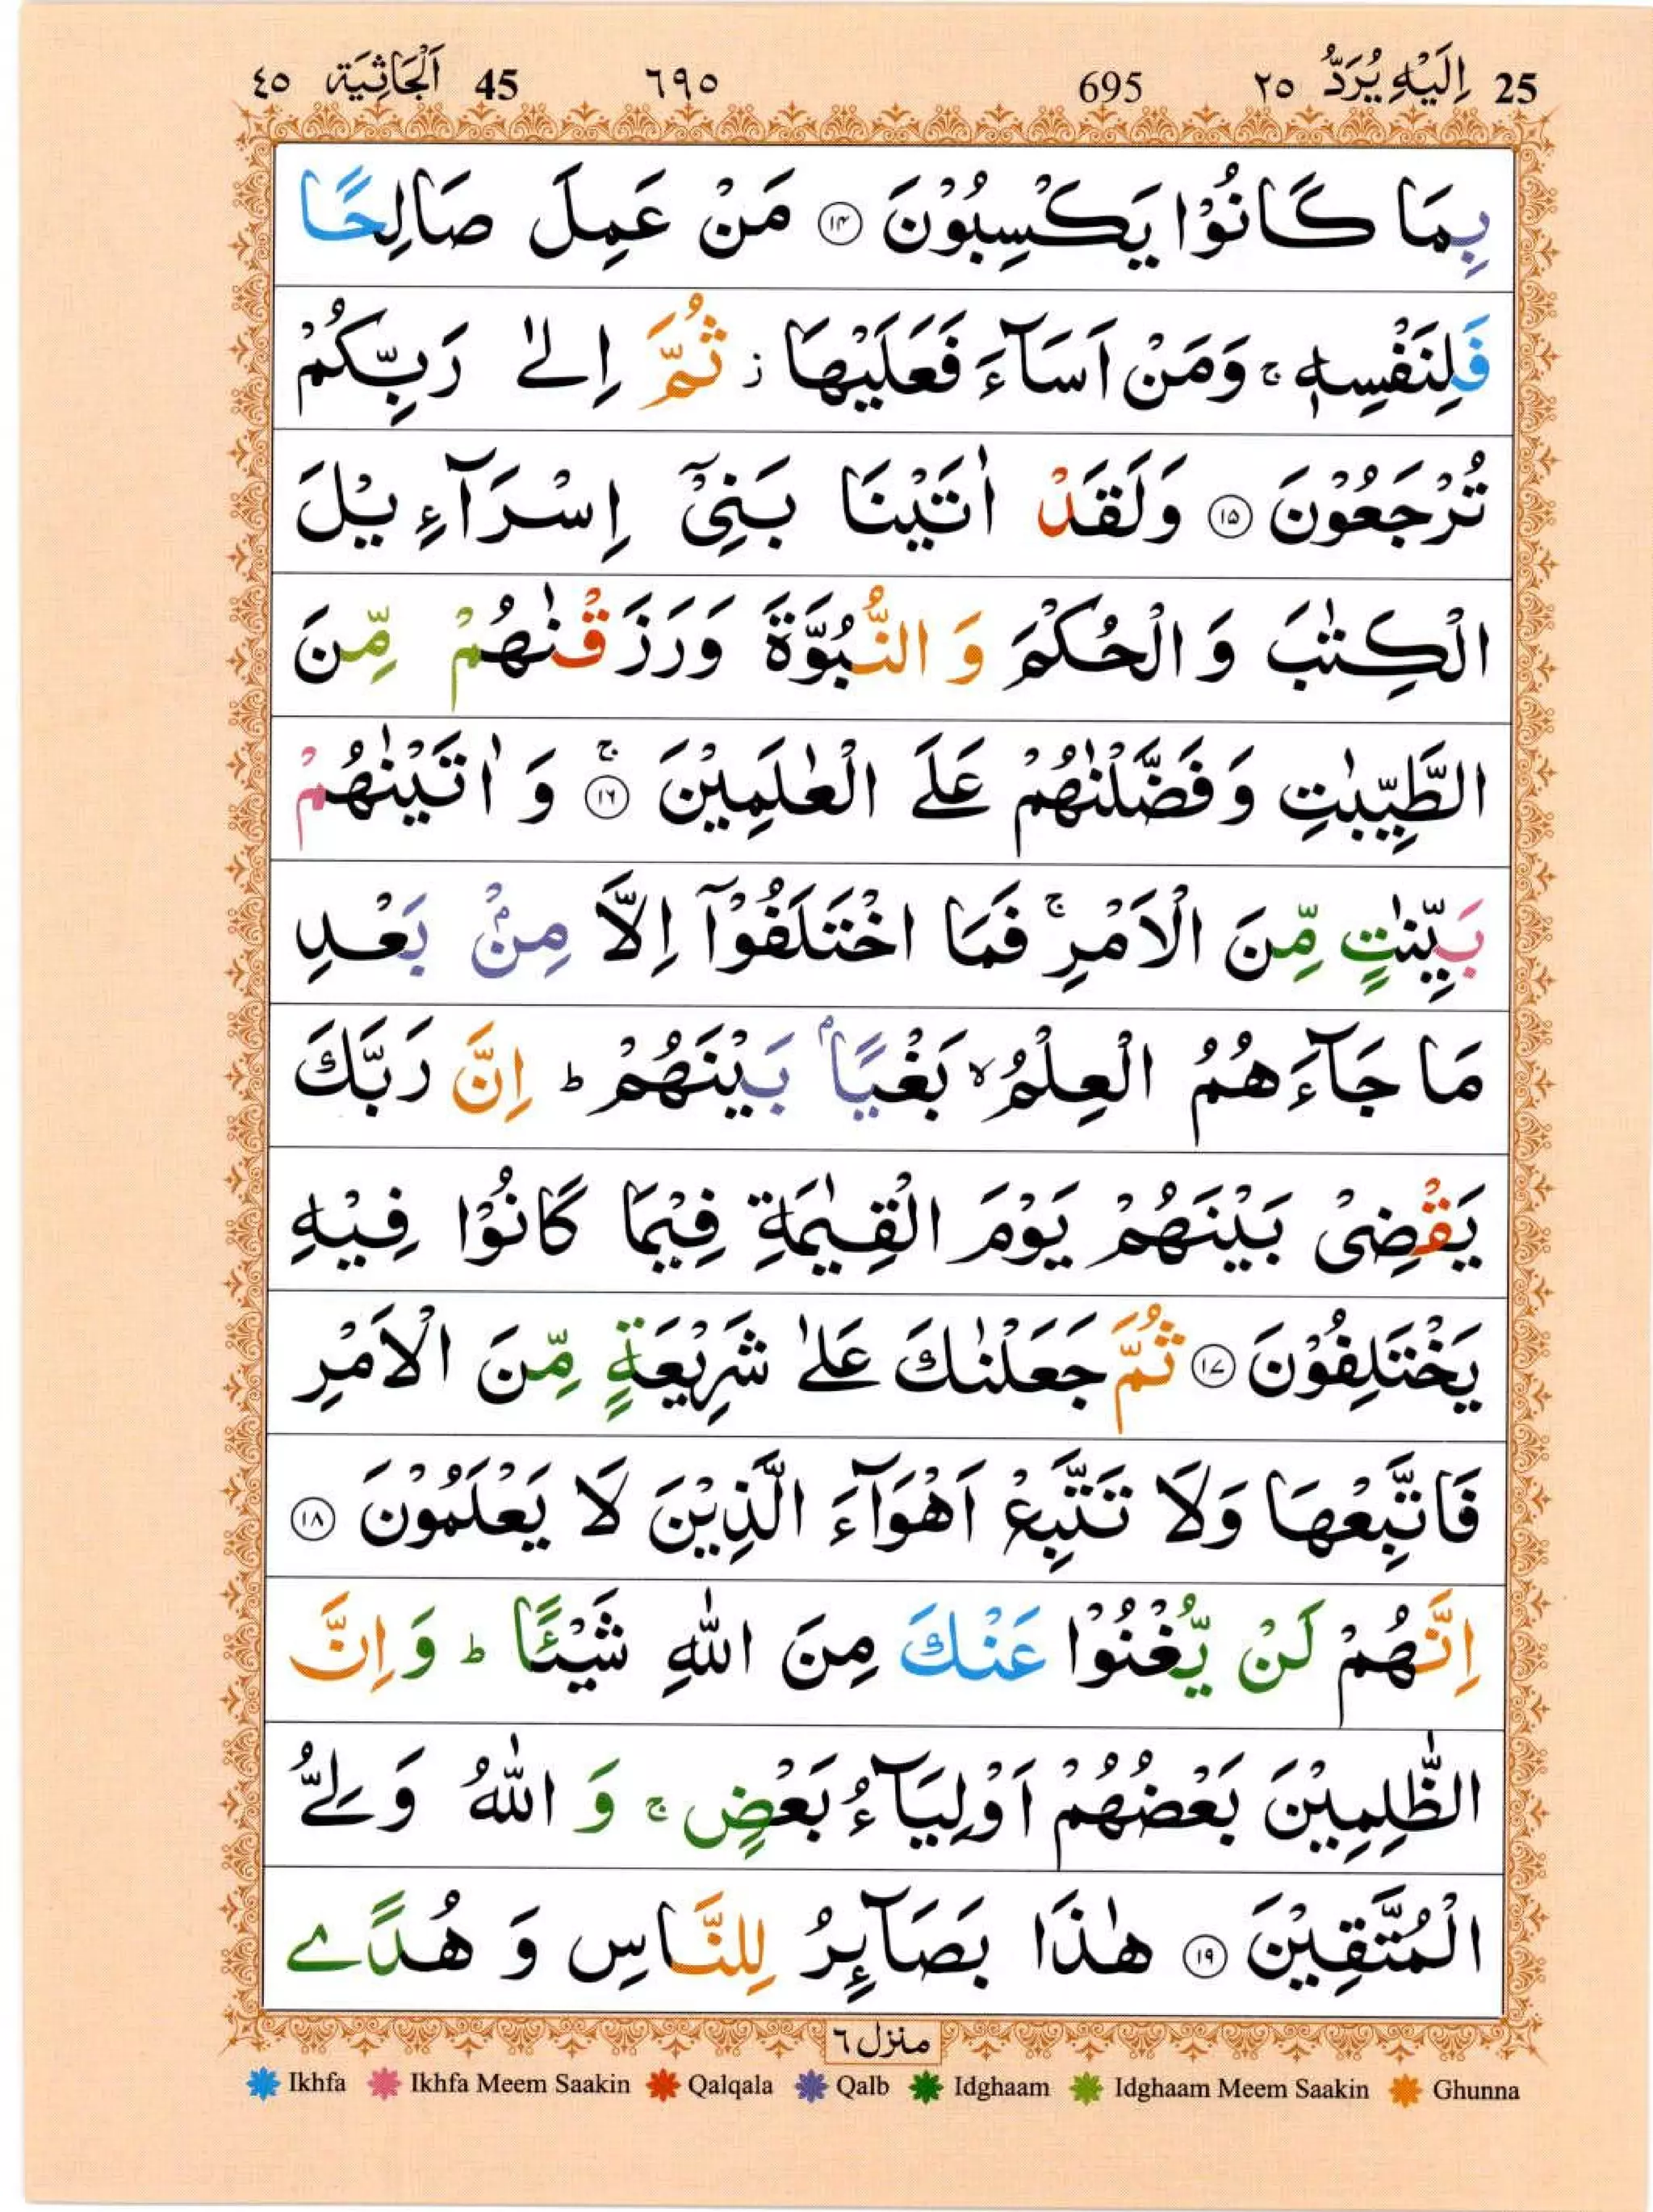 25 اِلَيْهِ يُرَدُّ ٢٥ 695 ٦٩٥ 45 اَلْجَاثِيَة ٤٥
بِمَا كَانُوْا يَكْسِبُوْنَ ۝١٤ مَنْ عَمِلَ صَالِحًا
فَلِنَفْسِهٖ ۚ وَمَنْ اَسَآءَ فَعَلَيْهَا ؗ ثُمَّ اِلٰى رَبِّكُمْ
تُرْجَعُوْنَ ۝١٥ وَلَقَدْ اٰتَيْنَا بَنِيْٓ اِسْرَآءِيْلَ
الْكِتٰبَ وَ الْحُكْمَ وَ النُّبُوَّةَ وَرَزَقْنٰهُمْ مِّنَ
الطَّيِّبٰتِ وَفَضَّلْنٰهُمْ عَلَى الْعٰلَمِيْنَ ۚ۝١٦ وَ اٰتَيْنٰهُمْ
بَيِّنٰتٍ مِّنَ الْاَمْرِ ۚ فَمَا اخْتَلَفُوْٓا اِلَّا مِنْۢ بَعْدِ
مَا جَآءَهُمُ الْعِلْمُ ۙ بَغْيًاۢ بَيْنَهُمْ ؕ اِنَّ رَبَّكَ
يَقْضِيْ بَيْنَهُمْ يَوْمَ الْقِيٰمَةِ فِيْمَا كَانُوْا فِيْهِ
يَخْتَلِفُوْنَ ۝١٧ ثُمَّ جَعَلْنٰكَ عَلٰى شَرِيْعَةٍ مِّنَ الْاَمْرِ
فَاتَّبِعْهَا وَلَا تَتَّبِعْ اَهْوَآءَ الَّذِيْنَ لَا يَعْلَمُوْنَ ۝١٨
اِنَّهُمْ لَنْ يُّغْنُوْا عَنْكَ مِنَ اللّٰهِ شَيْـًٔا ؕ وَاِنَّ
الظّٰلِمِيْنَ بَعْضُهُمْ اَوْلِيَآءُ بَعْضٍ ۚ وَ اللّٰهُ وَلِيُّ
الْمُتَّقِيْنَ ۝١٩ هٰذَا بَصَآئِرُ لِلنَّاسِ وَ هُدًى
منزل ٦
Ikhfa Ikhfa Meem Saakin Qalqala Qalb Idghaam Idghaam Meem Saakin Ghunna